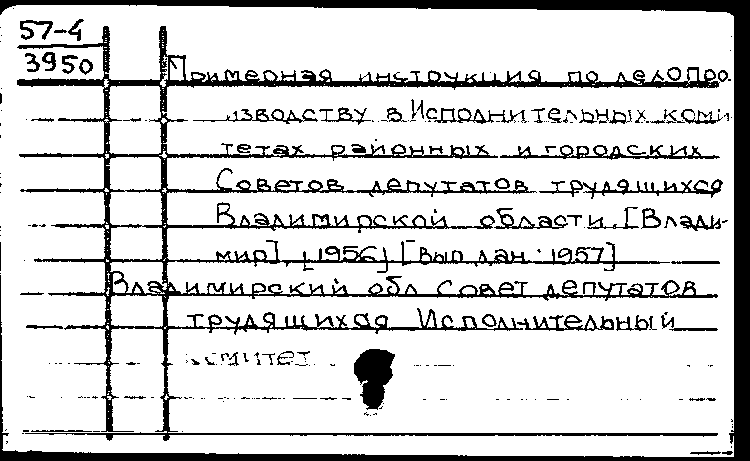 57-4
3950
Примерная инструкция по делопро
изводству в Исполнительных коми
тетах районных и городских
Советов депутатов трудящихся
Владимирской области. [Влади-
мир], [1956] [Вып дан: 1957]
Владимирский обл Совет депутатов
трудящихся Исполнительный
комитет